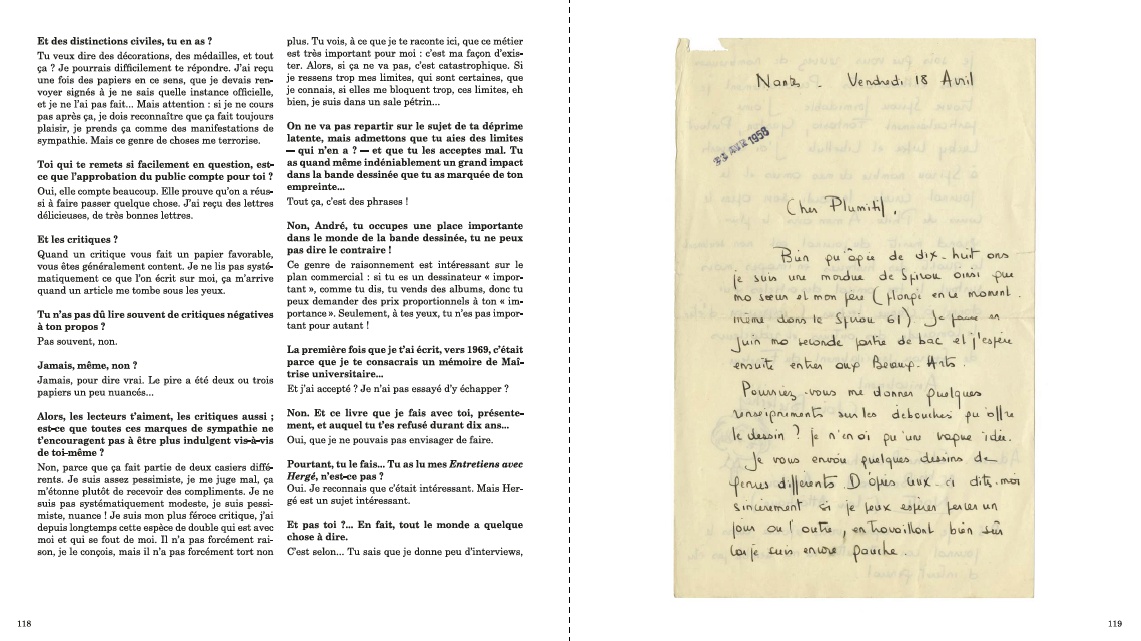 Et des distinctions civiles, tu en as ?
Tu veux dire des décorations, des médailles, et tout
ça ? Je pourrais difficilement te répondre. J'ai reçu
une fois des papiers en ce sens, que je devais ren-
voyer signés à je ne sais quelle instance officielle,
et je ne l'ai pas fait... Mais attention : si je ne cours
pas après ça, je dois reconnaître que ça fait toujours
plaisir, je prends ça comme des manifestations de
sympathie. Mais ce genre de choses me terrorise.
Toi qui te remets si facilement en question, est-
ce que l'approbation du public compte pour toi ?
Oui, elle compte beaucoup. Elle prouve qu'on a réus-
si à faire passer quelque chose. J'ai reçu des lettres
délicieuses, de très bonnes lettres.
Et les critiques ?
Quand un critique vous fait un papier favorable,
vous êtes généralement content. Je ne lis pas systé-
matiquement ce que l'on écrit sur moi, ça m'arrive
quand un article me tombe sous les yeux.
Tu n'as pas dû lire souvent de critiques négatives
à ton propos ?
Pas souvent, non.
Jamais, même, non ?
Jamais, pour dire vrai. Le pire a été deux ou trois
papiers un peu nuancés...
Alors, les lecteurs t'aiment, les critiques aussi ;
est-ce que toutes ces marques de sympathie ne
t'encouragent pas à être plus indulgent vis-à-vis
de toi-même ?
Non, parce que ça fait partie de deux casiers diffé-
rents. Je suis assez pessimiste, je me juge mal, ça
m'étonne plutôt de recevoir des compliments. Je ne
suis pas systématiquement modeste, je suis pessi-
miste, nuance ! Je suis mon plus féroce critique, j'ai
depuis longtemps cette espèce de double qui est avec
moi et qui se fout de moi. Il n'a pas forcément rai-
son, je le conçois, mais il n'a pas forcément tort non
118
plus. Tu vois, à ce que je te raconte ici, que ce métier
est très important pour moi : c'est ma façon d'exis-
ter. Alors, si ça ne va pas, c'est catastrophique. Si
je ressens trop mes limites, qui sont certaines, que
je connais, si elles me bloquent trop, ces limites, eh
bien, je suis dans un sale pétrin...
On ne va pas repartir sur le sujet de ta déprime
latente, mais admettons que tu aies des limites
— qui n'en a ? — et que tu les acceptes mal. Tu
as quand même indéniablement un grand impact
dans la bande dessinée que tu as marquée de ton
empreinte...
Tout ça, c'est des phrases !
Non, André, tu occupes une place importante
dans le monde de la bande dessinée, tu ne peux
pas dire le contraire !
Ce genre de raisonnement est intéressant sur le
plan commercial : si tu es un dessinateur « impor-
tant », comme tu dis, tu vends des albums, donc tu
peux demander des prix proportionnels à ton « im-
portance ». Seulement, à tes yeux, tu n'es pas impor-
tant pour autant !
La première fois que je t'ai écrit, vers 1969, c'était
parce que je te consacrais un mémoire de Maî-
trise universitaire...
Et j'ai accepté ? Je n'ai pas essayé d'y échapper ?
Non. Et ce livre que je fais avec toi, présente-
ment, et auquel tu t'es refusé durant dix ans...
Oui, que je ne pouvais pas envisager de faire.
Pourtant, tu le fais... Tu as lu mes Entretiens avec
Hergé, n'est-ce pas ?
Oui. Je reconnais que c'était intéressant. Mais Her-
gé est un sujet intéressant.
Et pas toi ?... En fait, tout le monde a quelque
chose à dire.
C'est selon... Tu sais que je donne peu d'interviews,
Nantes. Vendredi 18 Avril
22 AVR 1958
Cher Plumitif,
Bien qu'agée de dix-huit ans
je suis une mordue de Spirou ainsi que
ma sœur et mon père (plongé en ce moment
même dans le Spirou 61) Je passe en
juin ma seconde partie de bac et j'espère
ensuite entrer aux Beaux-Arts.
Pourriez-vous me donner quelques
renseignements sur les débouchés qu'offre
le dessin ? je n'en ai qu'une vague idée.
Je vous envoie quelques dessins de
genres différents. D'après ceux-ci dites-moi
sincèrement si je peux espérer percer un
jour ou l'autre, en travaillant bien sûr
car je suis encore gauche.
119